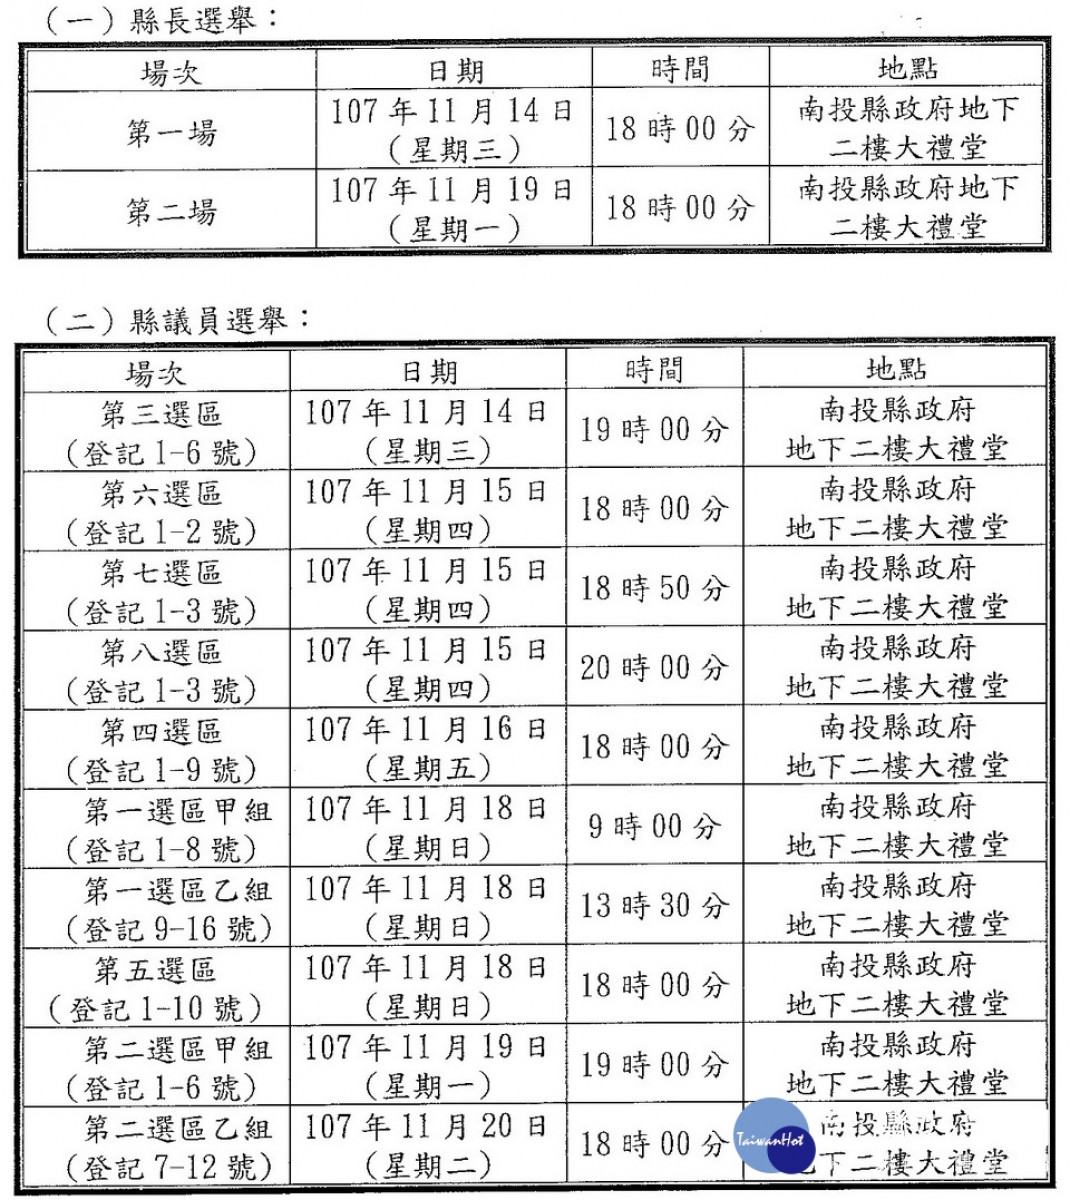 （一）縣長選舉：
場次 日期 時間 地點
第一場 107年11月14日（星期三） 18時00分 南投縣政府地下二樓大禮堂
第二場 107年11月19日（星期一） 18時00分 南投縣政府地下二樓大禮堂
（二）縣議員選舉：
場次 日期 時間 地點
第三選區（登記1-6號） 107年11月14日（星期三） 19時00分 南投縣政府地下二樓大禮堂
第六選區（登記1-2號） 107年11月15日（星期四） 18時00分 南投縣政府地下二樓大禮堂
第七選區（登記1-3號） 107年11月15日（星期四） 18時50分 南投縣政府地下二樓大禮堂
第八選區（登記1-3號） 107年11月15日（星期四） 20時00分 南投縣政府地下二樓大禮堂
第四選區（登記1-9號） 107年11月16日（星期五） 18時00分 南投縣政府地下二樓大禮堂
第一選區甲組（登記1-8號） 107年11月18日（星期日） 9時00分 南投縣政府地下二樓大禮堂
第一選區乙組（登記9-16號） 107年11月18日（星期日） 13時30分 南投縣政府地下二樓大禮堂
第五選區（登記1-10號） 107年11月18日（星期日） 18時00分 南投縣政府地下二樓大禮堂
第二選區甲組（登記1-6號） 107年11月19日（星期一） 19時00分 南投縣政府地下二樓大禮堂
第二選區乙組（登記7-12號） 107年11月20日（星期二） 18時00分 投縣政府下二樓大禮堂
TaiwanHot